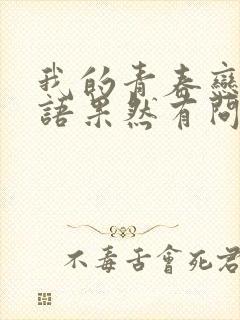 我的青春戀
語果然有問
不毒舌會死君